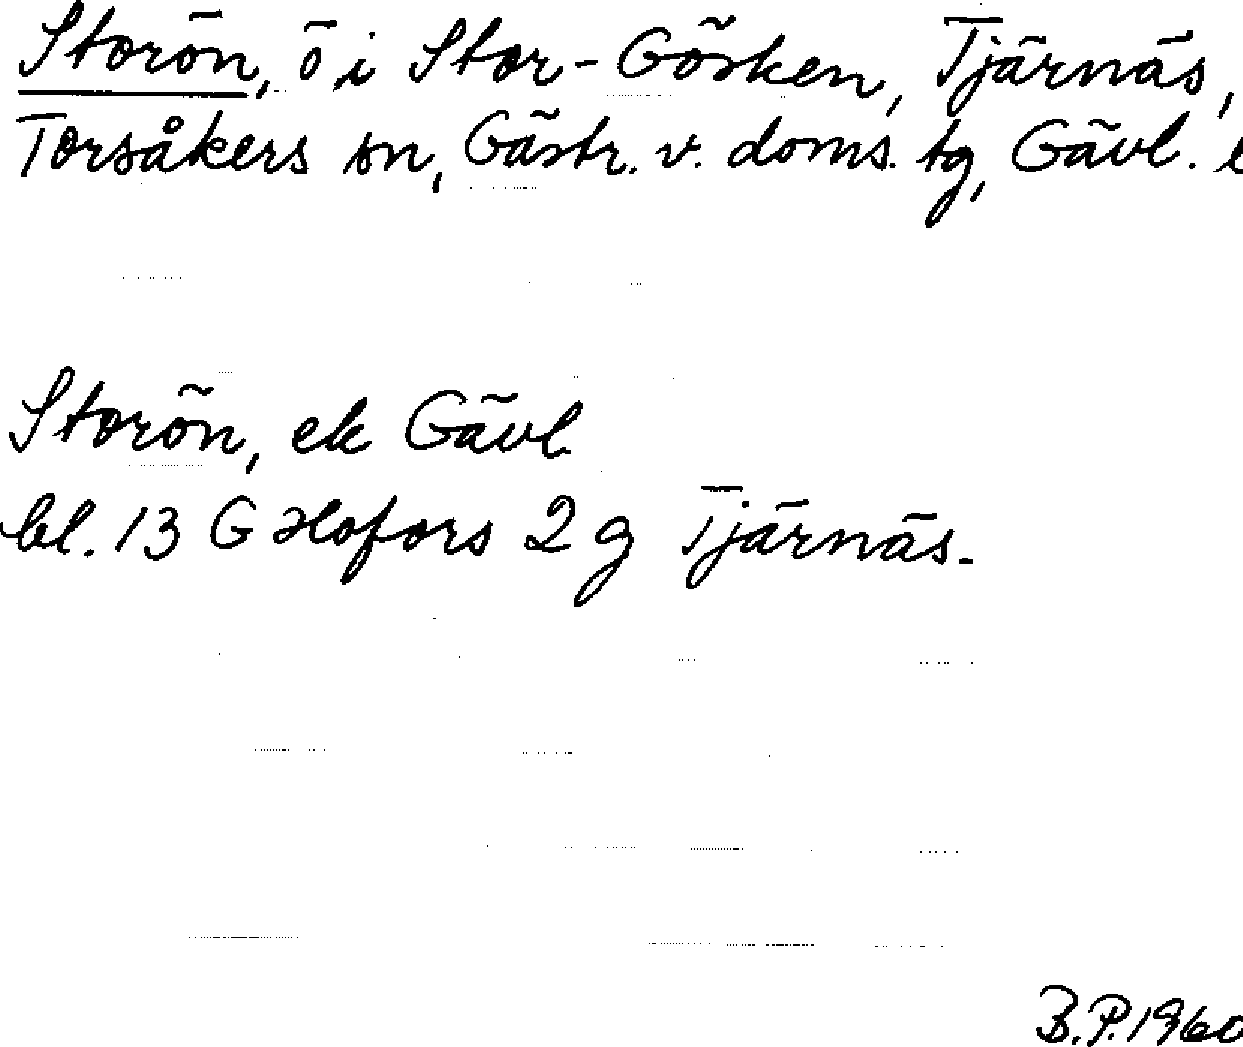 Storön, ö i Stor-Gösken, Tjärnäs,
Torsåkers sn, Gästr. v. doms. tg, Gävl. l
Storön, ek Gävl.
bl. 13 G Hofors 2 g Tjärnäs.
B.P. 1960